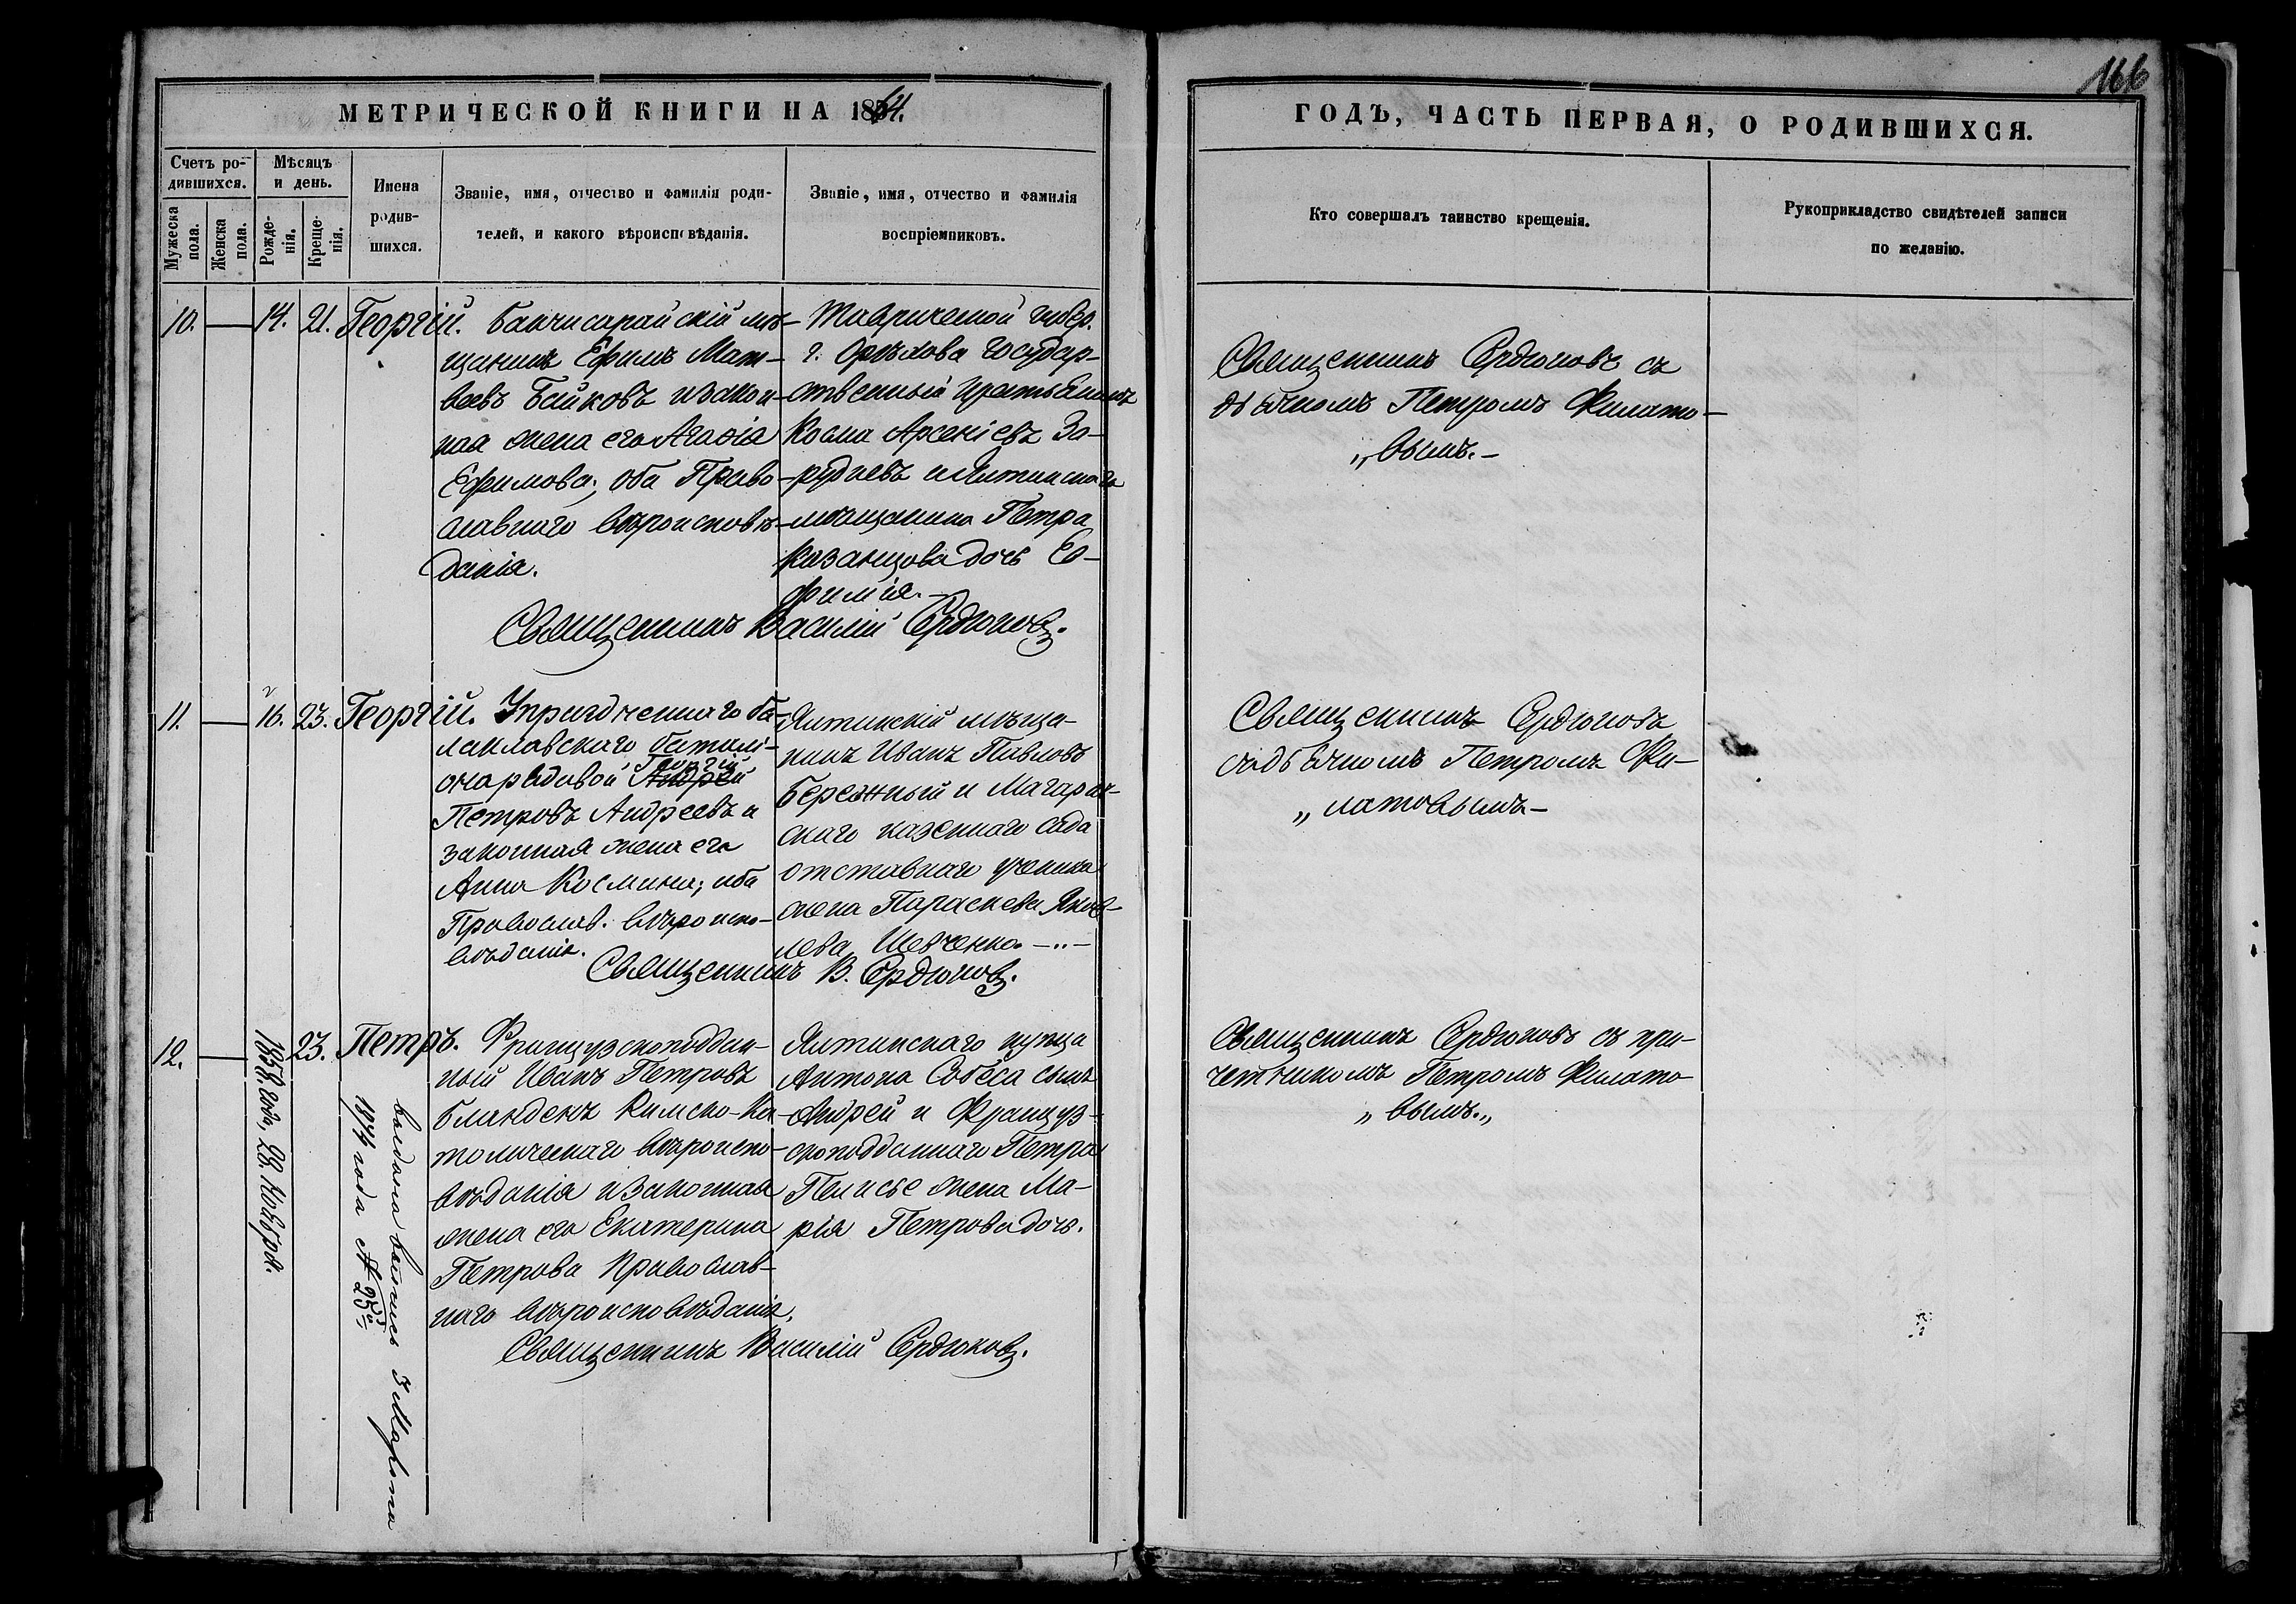 166
МЕТРИЧЕСКОЙ КНИГИ НА 1864.
ГОДЪ, ЧАСТЬ ПЕРВАЯ, О РОДИВШИХСЯ.
Счетъ ро-
дившихся.
Мужеска
пола.
Женска
пола.
Мѣсяцъ
и день.
Рожде-
нія.
Креще-
нія.
Имена
родив-
шихся.
Званіе, имя, отчество и фамилія роди-
телей, и какого вѣроисповѣданія.
Званіе, имя, отчество и фамилія
воспріемниковъ.
Кто совершалъ таинство крещенія.
Рукоприкладство свидѣтелей записи
по желанію.
10. — 14. 21. Георгій.
Бакчисарайскій мѣ-
щанинъ Ефимъ Мат-
веевъ Байковъ и закон-
ная жена его Агафія
Ефимова; оба Право-
славнаго вѣроисповѣ-
данія.
Таврической губер.
г. Орѣхова Государ-
ственный крестьянинъ
Косма Арсеніевъ За-
рудневъ и Ялтинскаго
мѣщанина Петра
Казанцова дочь Ев-
фимія.–
Священникъ Василій Сердюковъ.
Священникъ Сердюковъ съ
дьячкомъ Петромъ Филато-
„вымъ.–
11. — 16. 23. Георгій.
Упраздненнаго Ба-
лаклавскаго баталі-
она рядовой Андрей Георгій
Петровъ Андреевъ и
законная жена его
Анна Космина; оба
Православ. вѣроиспо-
вѣданія.
Ялтинскій мѣща-
нинъ Иванъ Павловъ
Бережный и Магарач-
скаго казеннаго сада
отставнаго ученика
жена Параскева Яков-
лева Шевченко. –..–
Священникъ В. Сердюковъ.
Священникъ Сердюковъ
съ дьячкомъ Петромъ Фи-
„латовымъ–
12. — 1858. года, 28. Ноября. 23. Петръ.
выдана выпись 3 Марта
1874 года № 25
Французскоподдан-
ный Иванъ Петровъ
Бланденъ Римско-Ка-
толическаго вѣроиспо-
вѣданія и законная
жена его Екатерина
Петрова Православ-
наго вѣроисповѣданія.
Ялтинскаго купца
Антона Собеса сынъ
Андрей и Француз-
скоподданнаго Петра
Пелисье жена Ма-
рія Петрова дочь.
Священникъ Василій Сердюковъ.
Священникъ Сердюковъ съ при-
четникомъ Петромъ Филато-
„вымъ.„